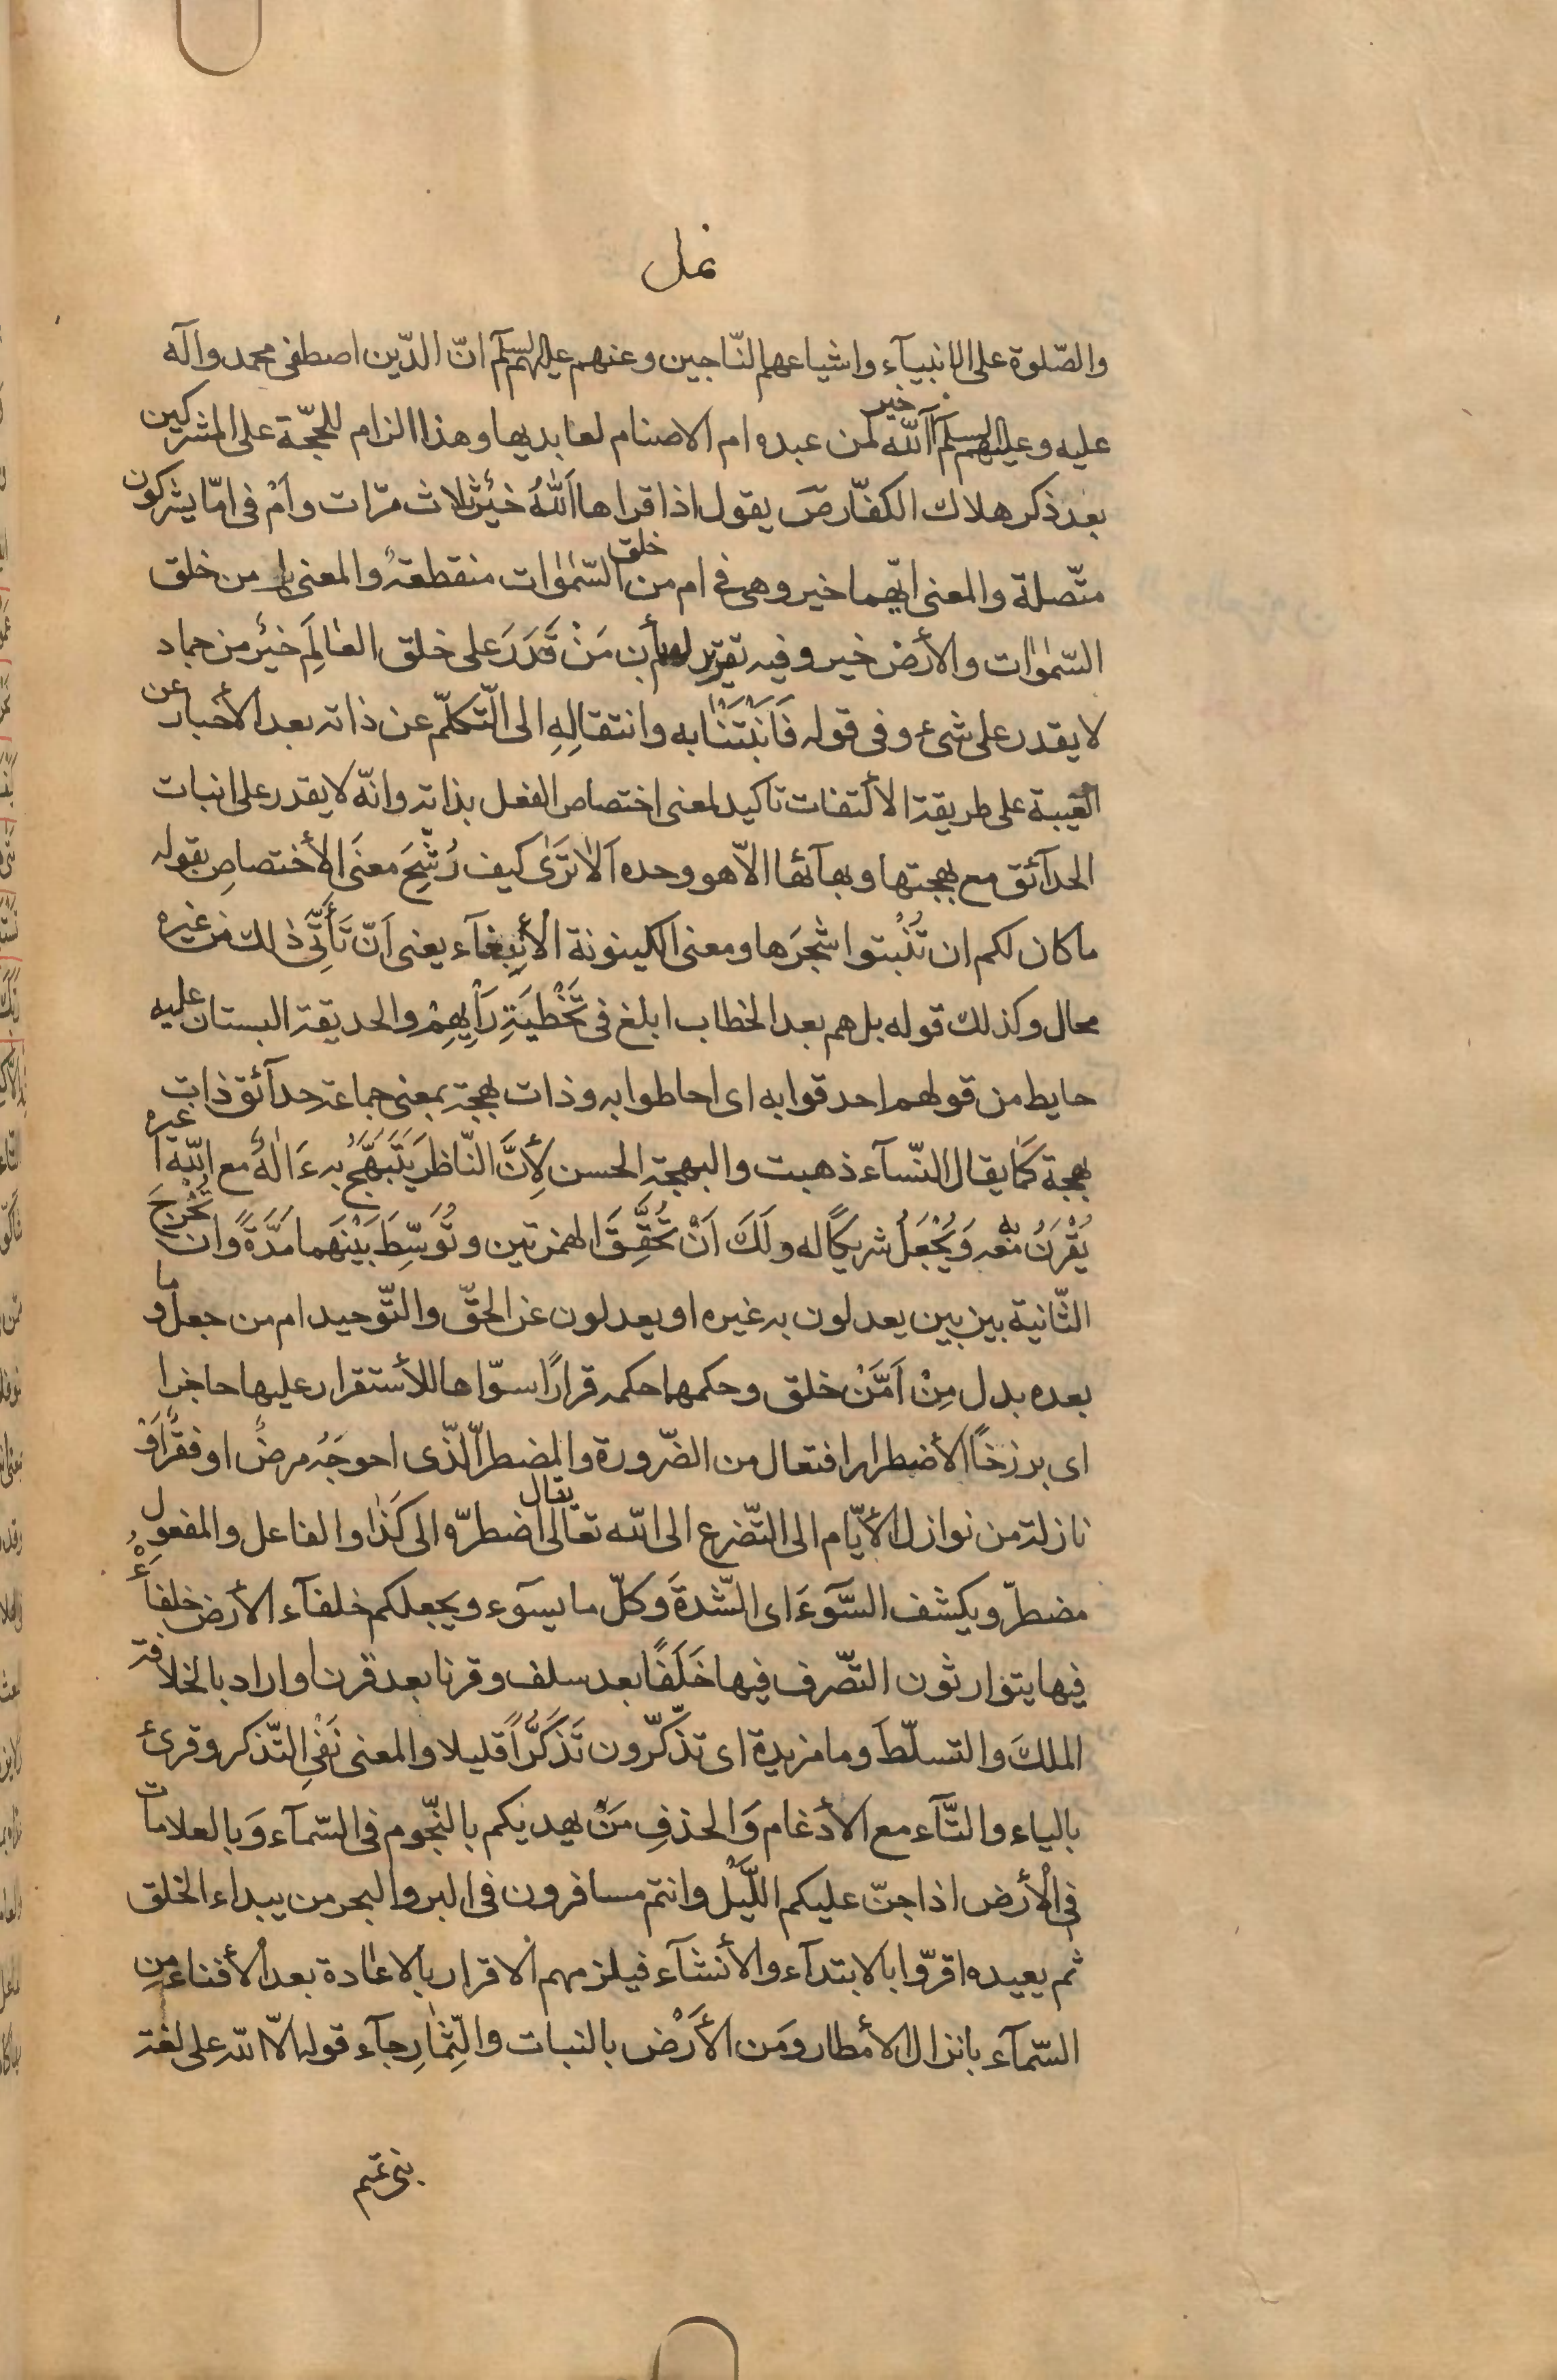 نمل
والصّلوة على الانبيآء واشياعهم النّاجين وعنهم عليهم السلم انّ الذّين اصطفى محمد وآله
عليه وعليهم السلم آالله خير لمن عبده ام الاصنام لعابديها وهذا الزام للحجّة على المشركين
بعد ذكر هلاك الكفّار صَ يقول اذا قراها اَللهُ خيرٌ ثلاث مرّات واَمْ فى امّا يشركون
متّصلة والمعنى ايّهما خير وهى فى ام من خلق السّمٰوٰات منقطعةٌ والمعنى بل من خلق
السّمٰوٰات والأرض خير وفيه تقرير لهم بأن مَنْ قَدَرَ على خلق العٰالَمِ خيرٌ من جماد
لا يقدر على شىء وفى قوله فَاَنْبَتْنٰا به وانتقالِهِ الى التّكلّم عن ذاته بعد الأخبار عن
الغيبة على طريقة الالتفات تاكيد لمعنى اختصاص الفعل بذاته وانّه لا يقدر على انبات
الحدآئق مع بهجتها وبهآئها الاّ هو وحده اَلاٰ تَرَىٰ كيف رُشِّحَ معنَى الأختصاصِ بقوله
ما كان لكم ان تُنْبتوا شجرَها ومعنى الكينونة الأنبغآء يعنى اَنّ تَأَتِّىَ ذلك من غيره
محال وكذلك قوله بل هم بعد الخطاب ابلغ فى تَخْطِيَةِ رَأيِهِمْ والحديقة البستان عليه
حايط من قولهم احدقوا به اى احاطوا به وذات بهجة بمعنى جماعة حدآئق ذات
بهجة كَمٰا يقال النّسآء ذهبت والبهجة الحسن لِأَنَّ النّاظر يَتَبَهَّجُ به ءَاِلٰهٌ مع اللّه اَ غيره
يُقْرَنُ به معه وَيُجْعَلُ شريكًا له ولَكَ اَنْ تُحَقِّقَ الهمزتين وتُوَسِّطَ بَيْنَهما مَدَّةً وان تُخْرِجَ
الثّانية بين بين يعدلون به غيره او يعدلون عن الحقّ والتّوحيد ام من جعل وما
بعده بدل مِنْ اَمَّنْ خلق وحكمها حكمه قرارًا سوّاها للأستقرار عليها حاجزا
اى برزخًا الأضطرار افتعال من الضّرورة والمضطرّ الّذى احوجَهُ مرضٌ او فقرٌ اَوْ
نازلة من نوازل الأيّام الى التّضرع الى اللّه تعالى يقال اضطرّه الى كَذٰا والفاعل والمفعول
مضطرّ ويكشف السّوءَ اى الشّدةَ وكلّ ما يسوء ويجعلكم خلفآء الأرض خلفآءَ
فيها يتوارثون التّصّرف فيها خَلَفًا بعد سلف وقرنا بعد قرن او اراد بالخلافة
الملكَ والتسلّطَ وما مزيدة اى تذّكرّون تَذَكُّرًا قليلا والمعنى نَفْىِ التّذكر وقرئ
بالياء والتّآء مع الأدغام وَالحذفِ مَنْ يهديكم بالنّجوم فى السّمآء وَبالعلامات
فى الأرض اذا جنّ عليكم اللَّيل وانتم مسافرون فى البر والبحر من يبداء الخلق
ثم يعيده اقرّوا بالابتدآء والأنشآء فيلزمهم الاقرار بالاعٰادة بعد الأفناء من
السّمآء بانزال الأمطار ومَن الأَرْض بالنبات والثِّمٰارِ جآء قوله الاّ اللّه على لغة
بنى تميم